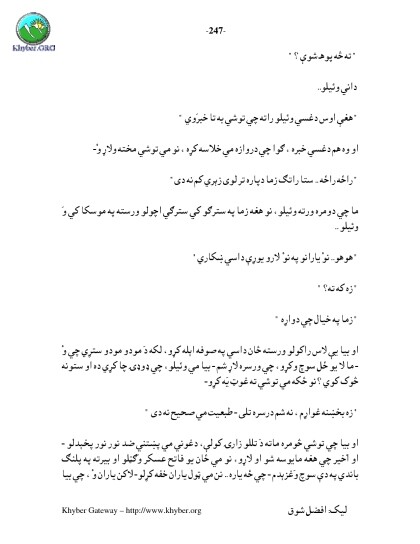 -247-
Khyber.ORG
" ته څه پوهـ شوې ؟ "
داني وئيلو..
"هغې اوس دغسې وئيلو راته چي توشي به تا خبروي "
او وه هم دغسې خبره ، ګوا چي دروازه مي خلاسه کړه ، نو مي توشي مخته ولاړ وٴ-
"راځه راځه .. ستا راتګ زما دپاره تر لوی زېري کم نه دی"
ما چي دومره ورته وئيلو ، نو هغه زما په سترګو کي سترګي اچولو ورسته په موسکا کي وَ
وئيلو ..
"هوهو.. نوٴ يارانو په نوٴ لارو يوړې داسي ښکاري"
"زه که ته؟ "
"زما په خيال چي دواړه "
او بيا يې لاس راکولو ورسته ځان داسي په صوفه ايله کړو ، لکه دَ مودو مودو ستړي چي وٴ
- ما لا يو ځل سوچ وکړو ، چي ورسره لاړ شم - بيا مي وئيلو ، چي ډوډۍ چا کړي ده او ستونه
څوک کوي ؟ نو ځکه مي توشي ته غوټ يَه کړو-
"زه بخښنه غواړم ، نه شم درسره تلی - طبعيت مي صحيح نه دی "
او بيا چي توشي څومره ماته دَ تللو زارۍ کولې ، دغوني مي پښتني ضد نور نور پخېدلو -
او اخير چي هغه مايوسه شو او لاړو ، نو مي ځان يو فاتح عسکر وګڼلو او بيرته په پلنګ
باندي په دې سوچ وَغزېدم - چي څه ياره .. نن مي ټول ياران خفه کړلو - لاکن ياران وٴ ، چي بيا
Khyber Gateway – http://www.khyber.org
ليک: افضل شوق